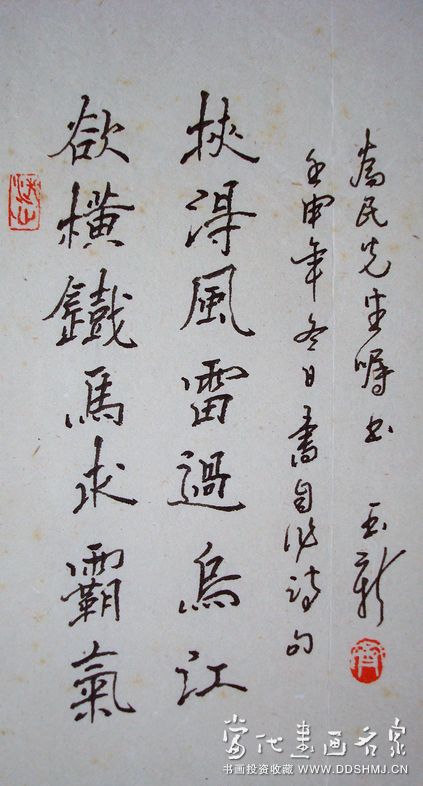 欲橫鐵馬求霸氣
挾得風雷過烏江
壬申年冬日書自作诗句
為民先生嘱书 玉新
当代书画名家
书画投资收藏 WWW.DDSHMJ.CN